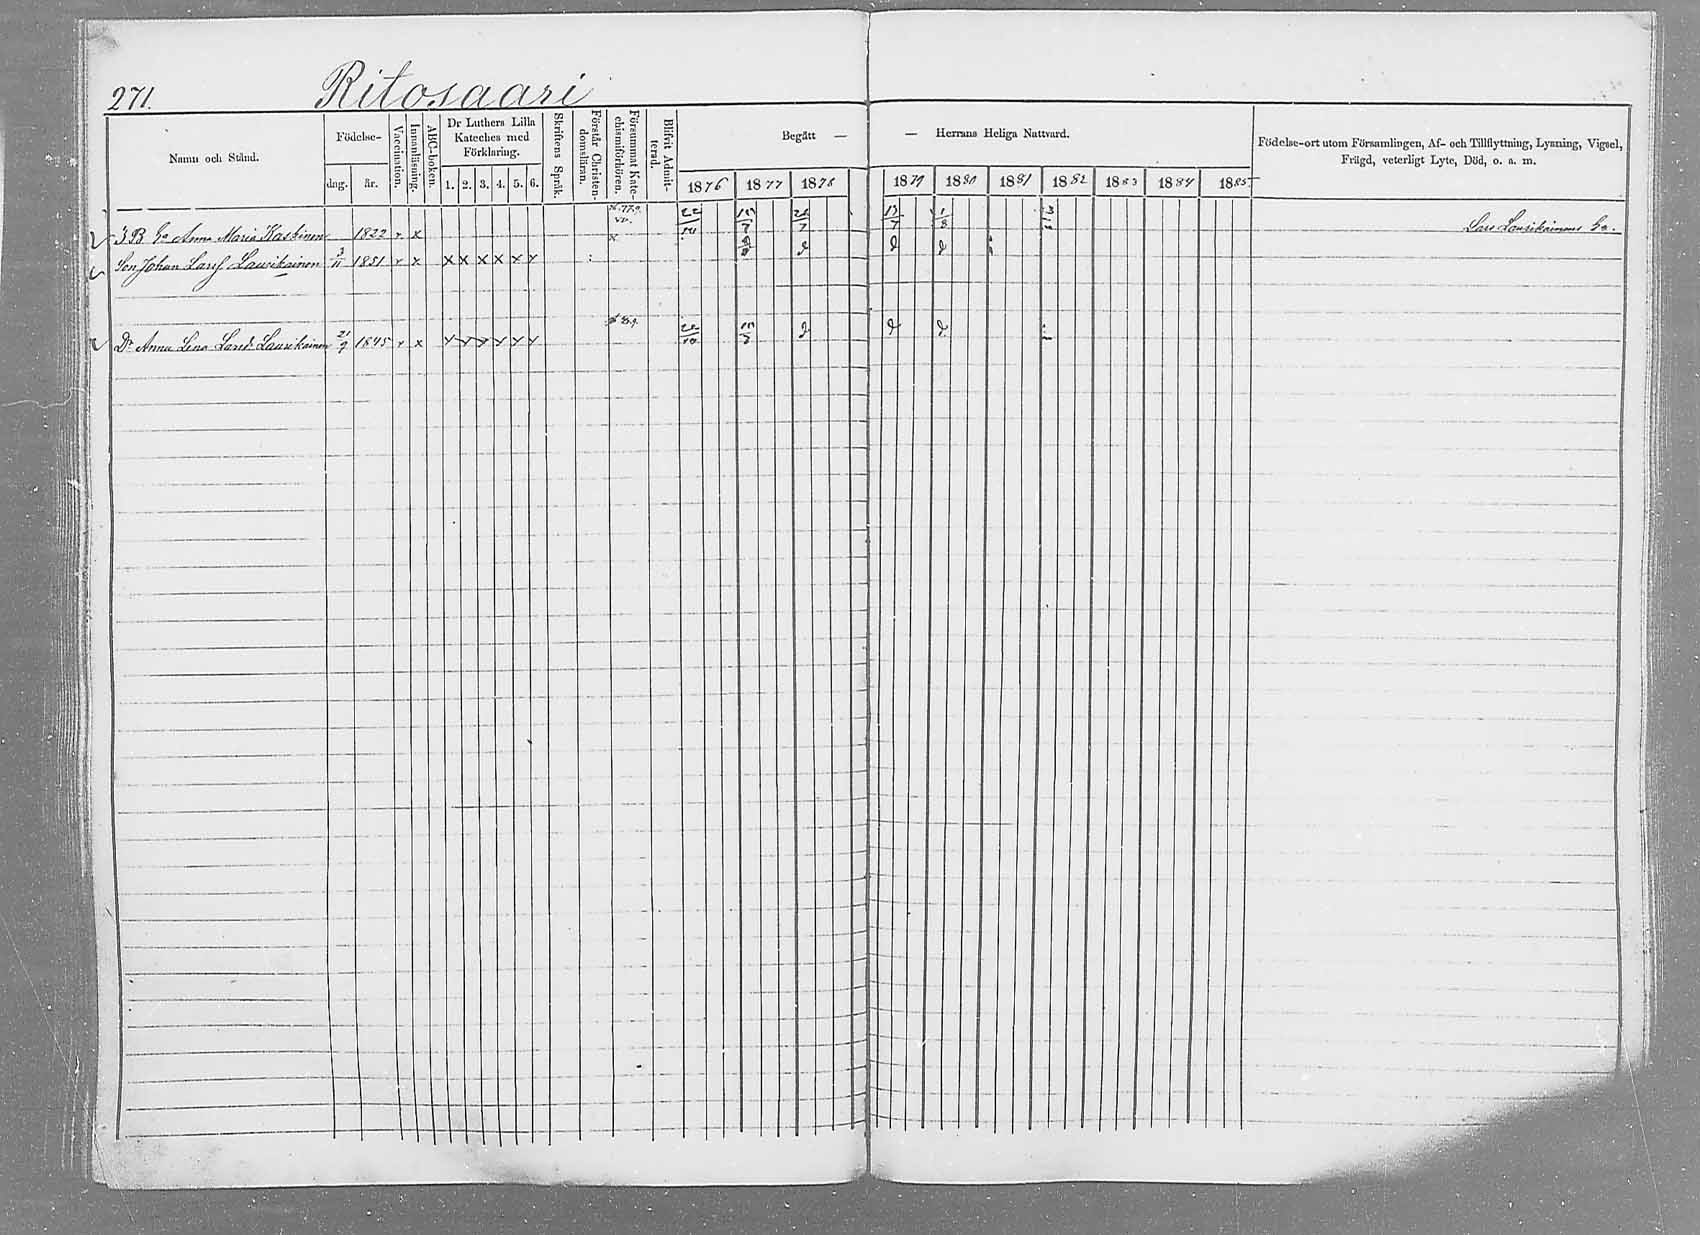 271. Ritosaari
Namn och Stånd.
Födelse-
dag. år.
Vaccination.
Innanläsning.
ABC-boken.
Dr Luthers Lilla
Kateches med
Förklaring.
1. 2. 3. 4. 5. 6.
Skriftens Språk.
Förstår Christen-
domsläran.
Försummat Kate-
chismiförhören.
Blifvit Admit-
terad.
Begått — — Herrans Heliga Nattvard.
1876 1877 1878 1879 1880 1881 1882 1883 1884 1885
Födelse-ort utom Församlingen, Af- och Tillflyttning, Lysning, Vigsel,
Frägd, veterligt Lyte, Död, o. a. m.
Anna Maria Kaskinen 1822 v x Lars Laurikainens
Son Johan Larss Laurikainen 3/11 1851 v x x x x x x x
Dr Anna Lena Larsd. Laurikainen 21/9 1845 v x x x x x x x